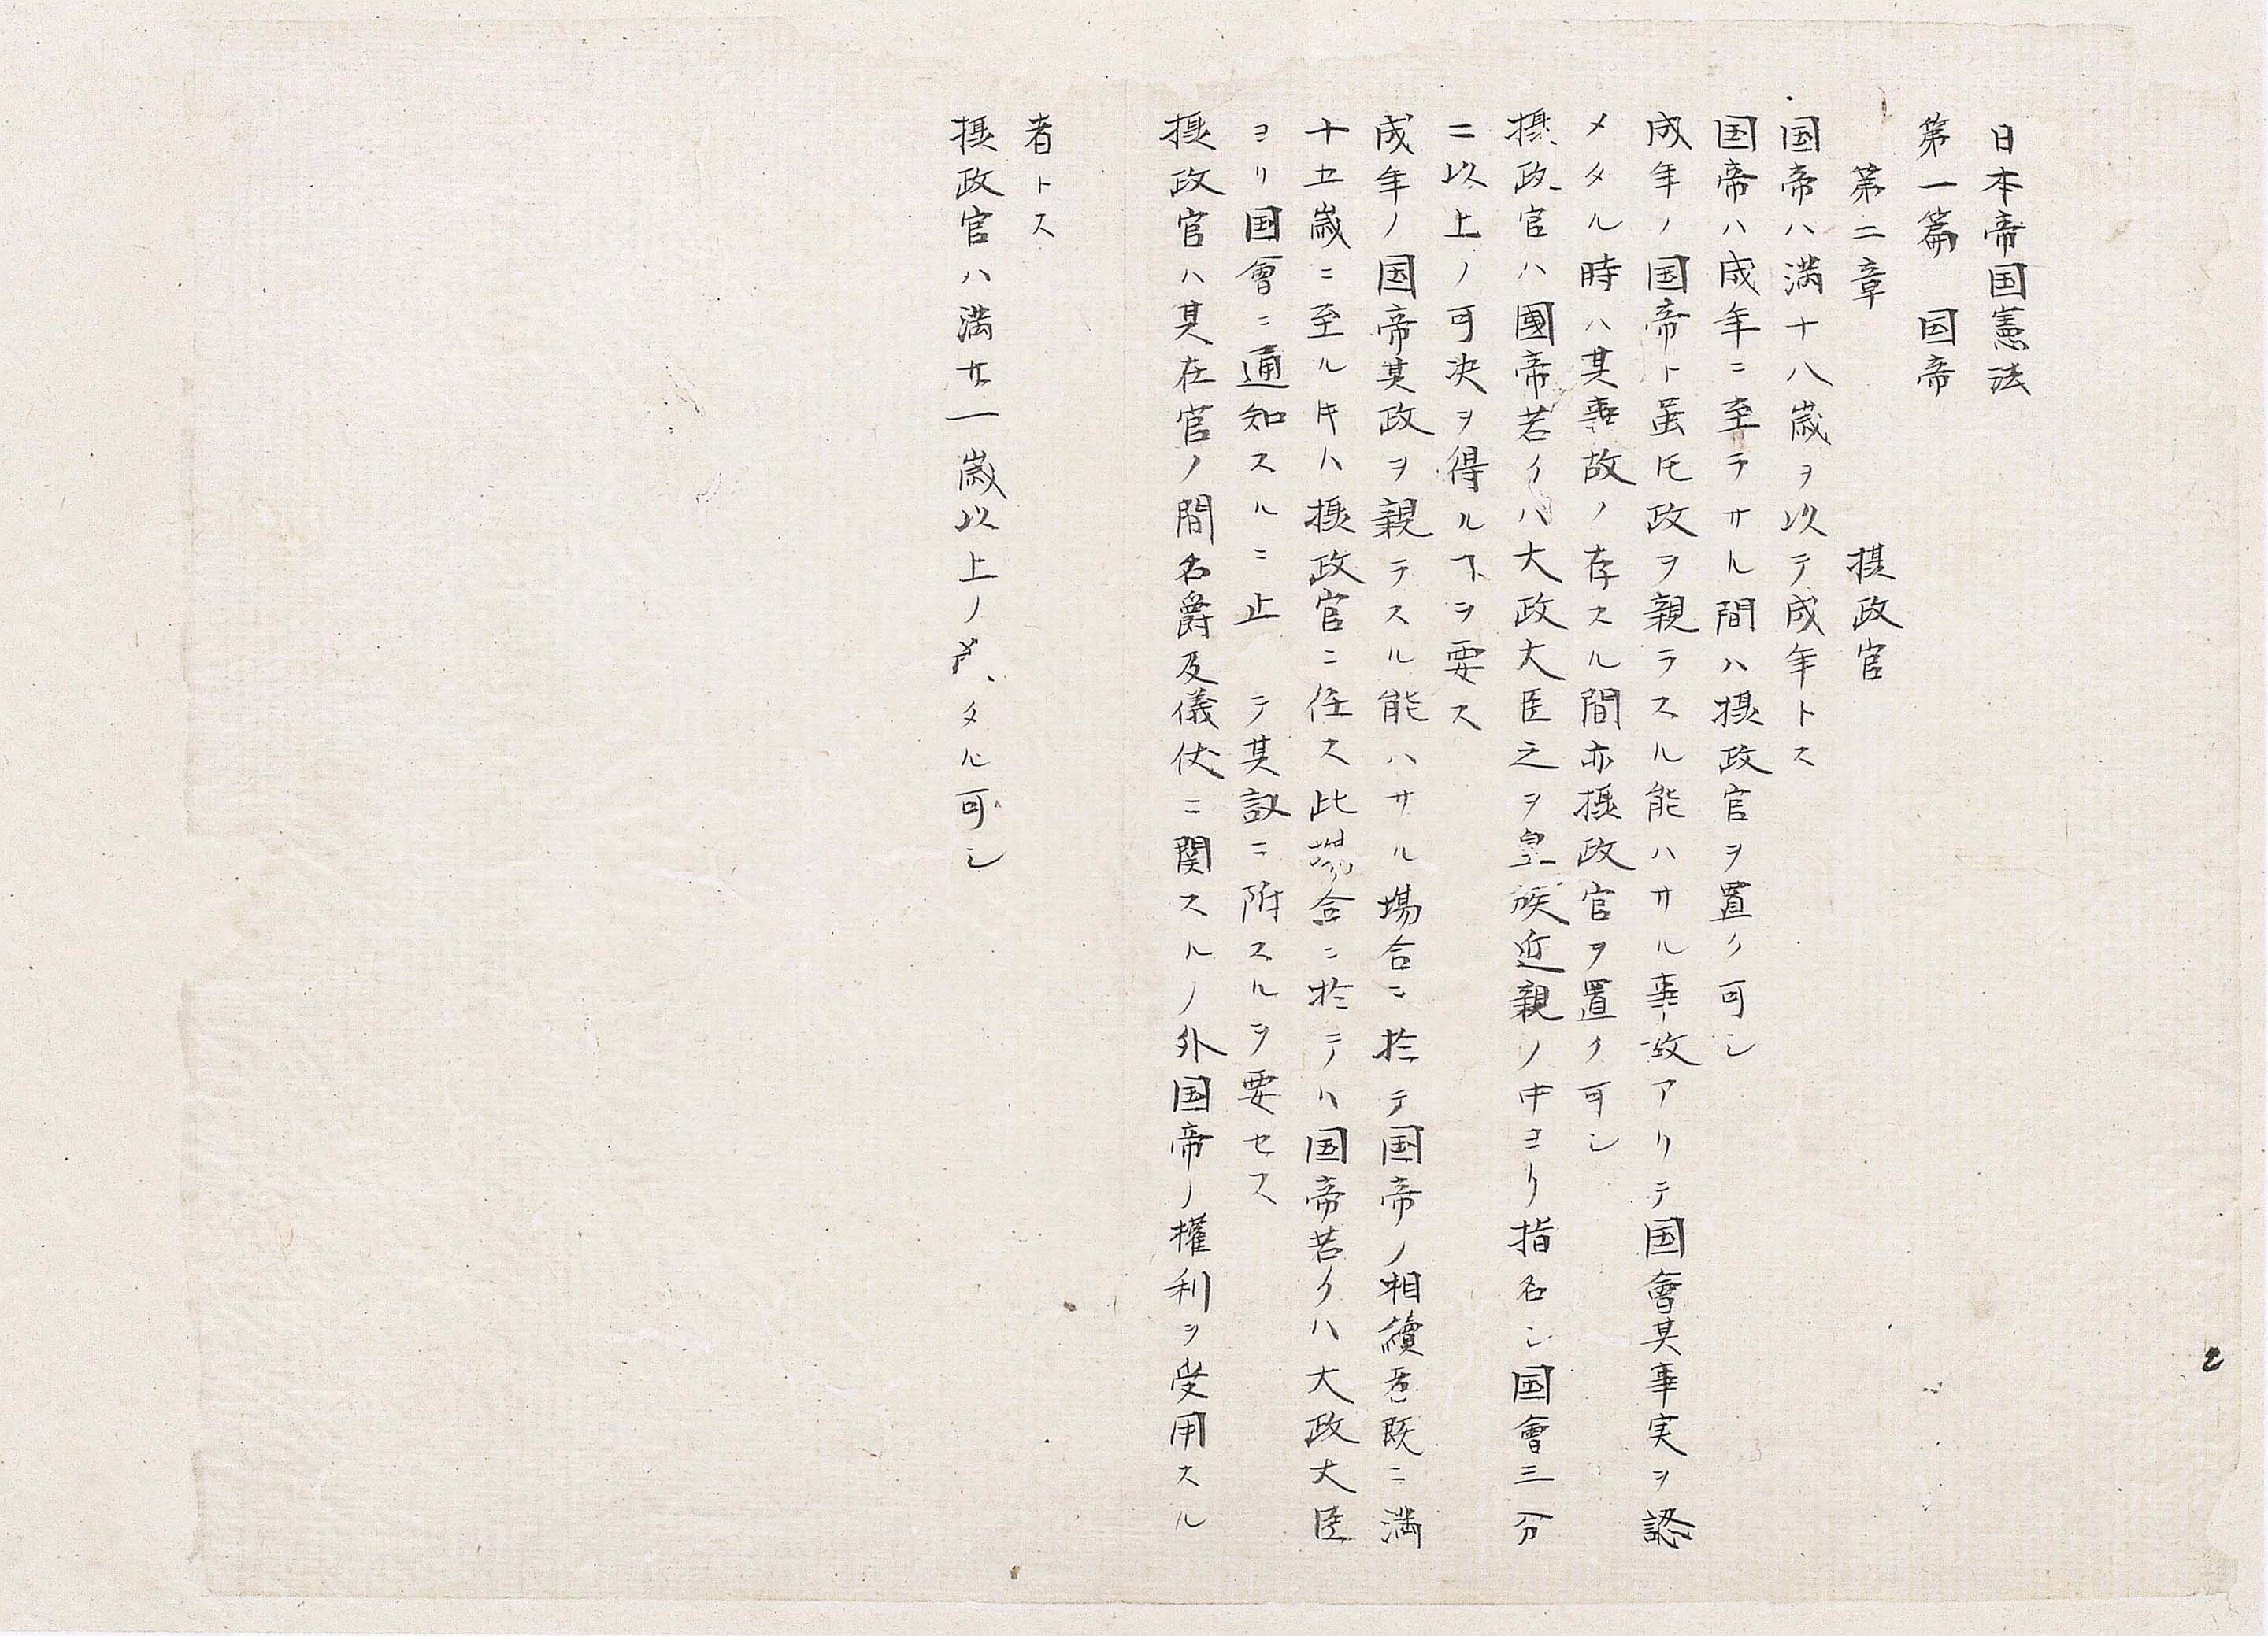 日本帝国憲法
第一篇　国帝
第二章　　　　　摂政官
国帝ハ満十八歳ヲ以テ成年トス
国帝ハ成年ニ至テサル間ハ摂政官ヲ置ク可シ
成年ノ国帝ト虽𪜈政ヲ親ラスル能ハサル事故アリテ国會其事実ヲ認
メタル時ハ其事故ノ存スル間亦摂政官ヲ置ク可シ
摂政官ハ國帝若クハ大政大臣之ヲ皇族近親ノ中ヨリ指名シ国會三分
ニ以上ノ可决ヲ得ルヿヲ要ス
成年ノ国帝其政ヲ親ラスル能ハサル場合ニ於テ国帝ノ相續者既ニ満
十五歳ニ至ルキハ摂政官ニ任ス此場合ニ於テハ国帝若クハ大政大臣
ヨリ国會ニ通知スルニ止　テ其議ニ附スルヲ要セス
摂政官ハ其在官ノ間名爵及儀仗ニ関スルノ外国帝ノ權利ヲ受用スル
者トス
摂政官ハ満廿一歳以上ノタル可シ